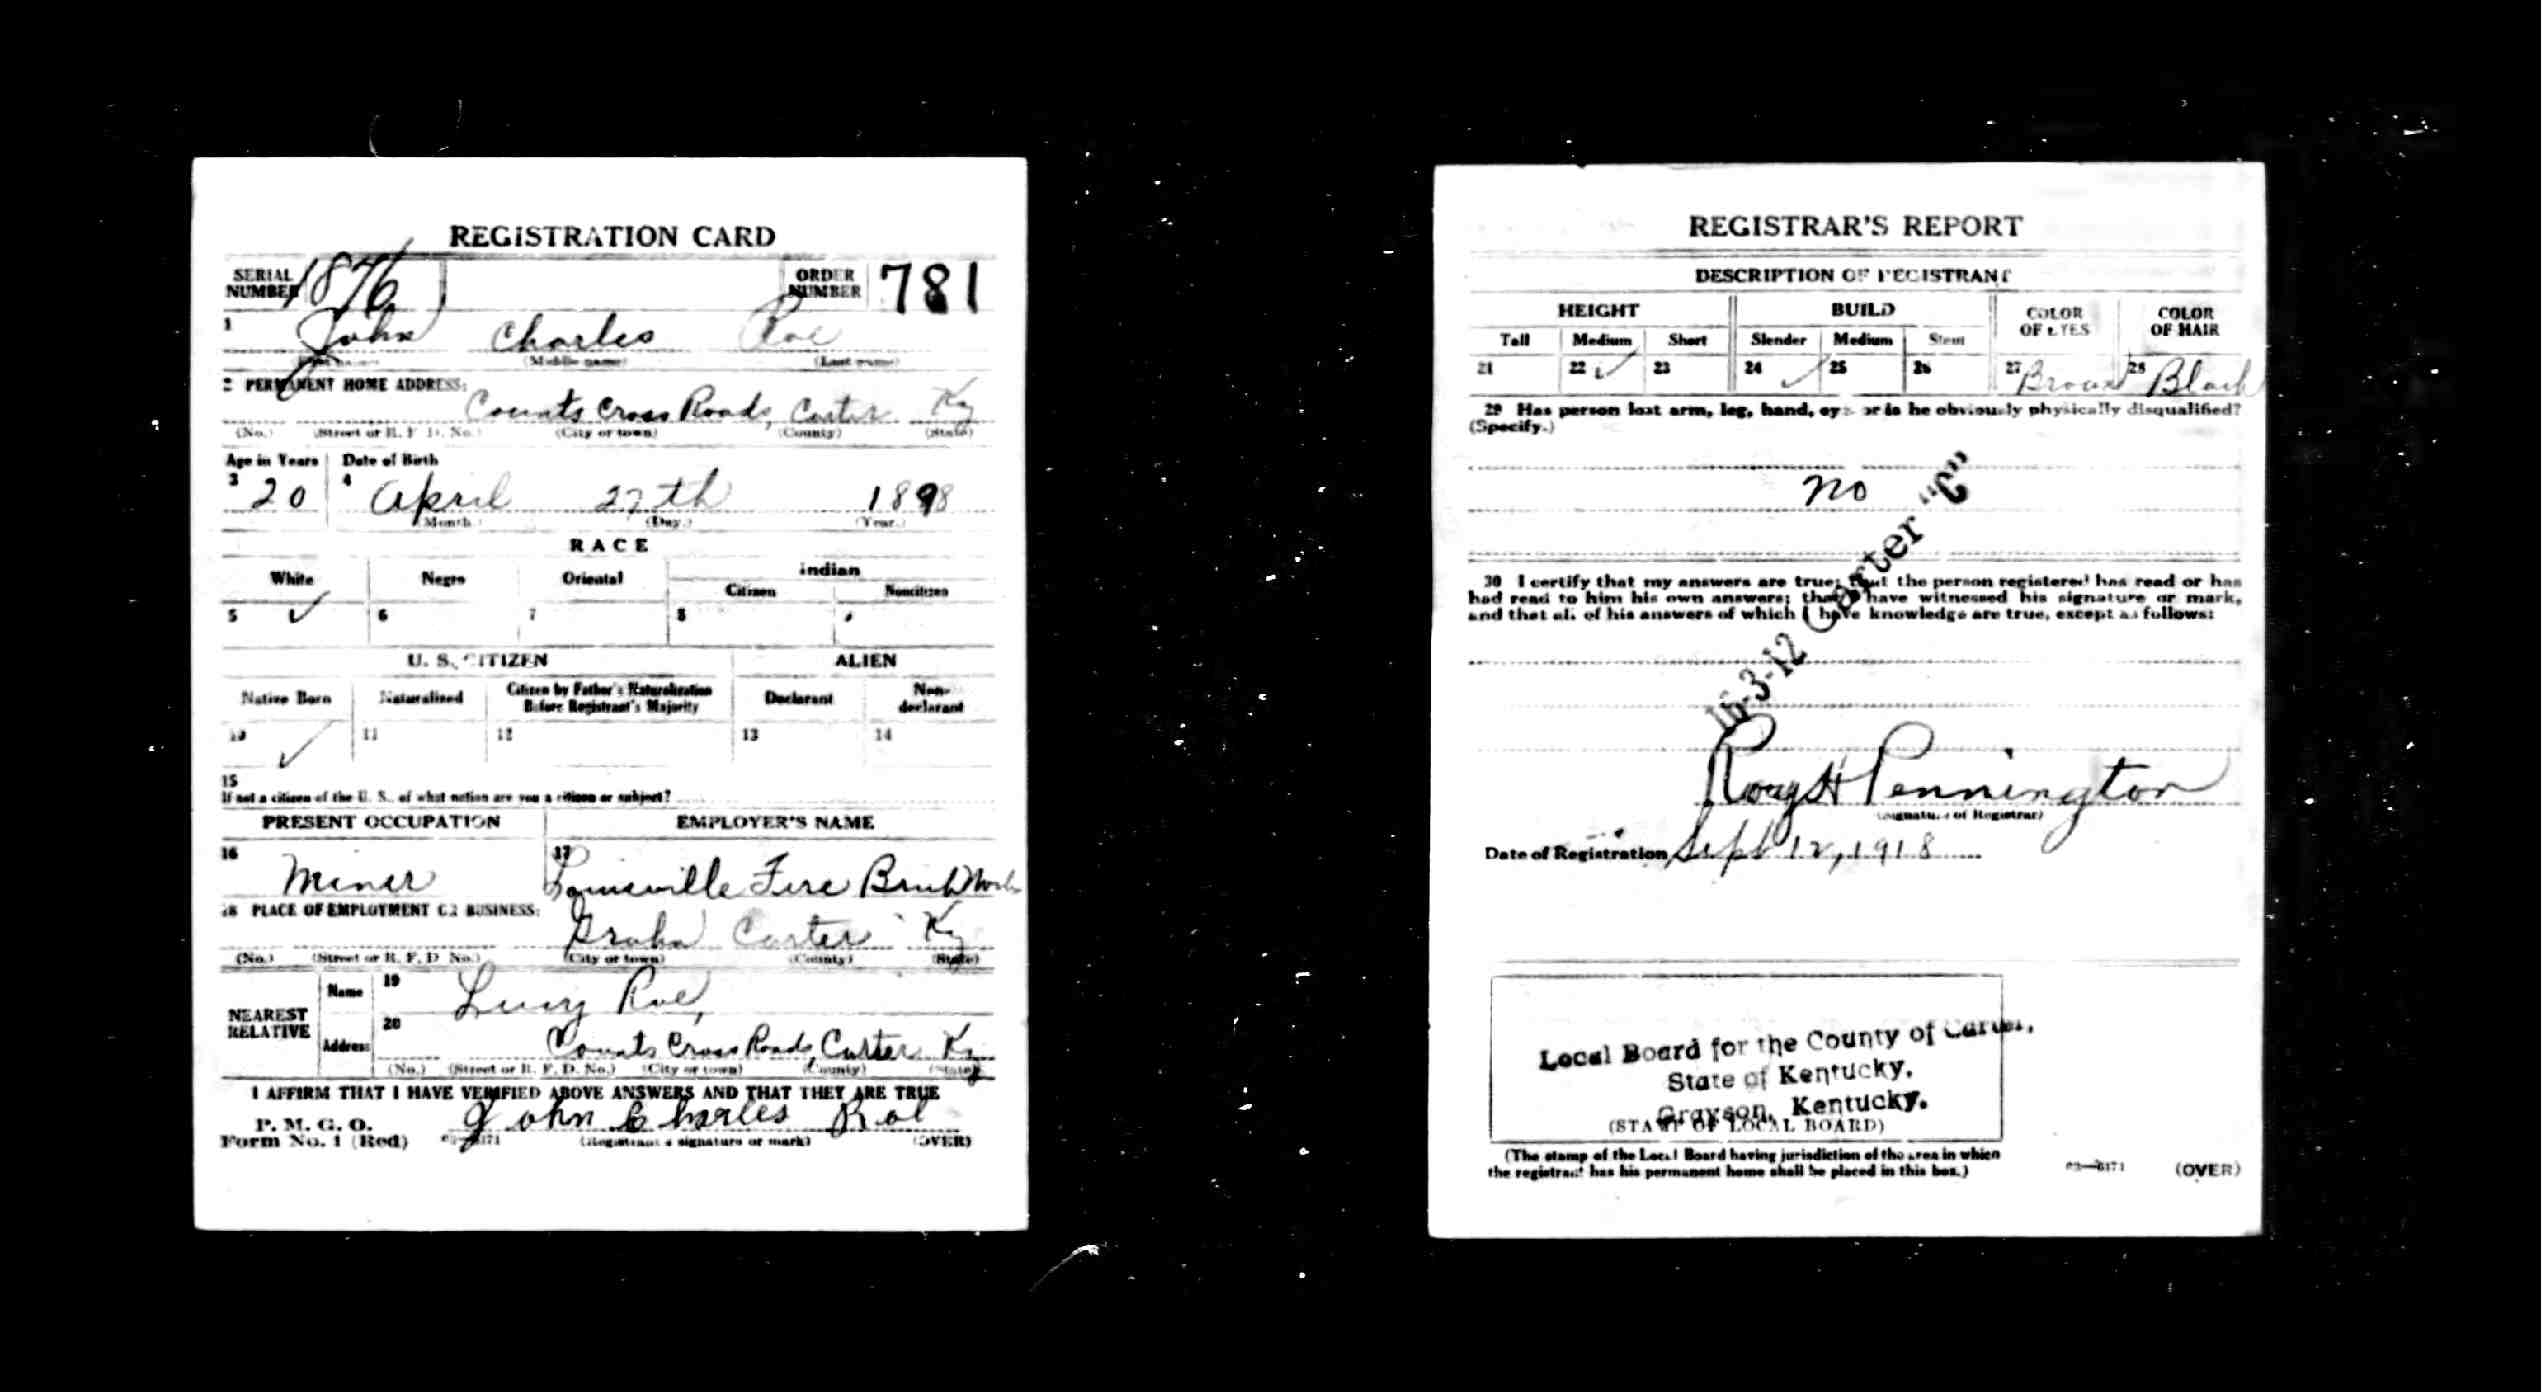 REGISTRATION CARD
SERIAL NUMBER 1876 ORDER NUMBER 781
1 John Charles Roe
(Middle name) (Last name)
2 PERMANENT HOME ADDRESS:
Counts Cross Roads, Carter Ky
(No.) (Street or R. F. D. No.) (City or town) (County) (State)
Age in Years Date of Birth
3 20 4 April 27th 1898
(Month.) (Day.) (Year.)
RACE
White Negro Oriental Indian
Citizen Noncitizen
5 ✓ 6 7 8
U. S. CITIZEN ALIEN
Native Born Naturalized Citizen by Father's Naturalization Before Registrant's Majority Declarant Non-declarant
10 ✓ 11 12 13 14
15
If not a citizen of the U. S., of what nation are you a citizen or subject?
PRESENT OCCUPATION EMPLOYER'S NAME
16 Miner 17 Louisville Fire Brick Works
18 PLACE OF EMPLOYMENT OR BUSINESS:
Grahn Carter Ky
(No.) (Street or R. F. D. No.) (City or town) (County) (State)
NEAREST RELATIVE
Name 19 Lucy Roe,
Address 20 Counts Cross Roads, Carter Ky
(No.) (Street or R. F. D. No.) (City or town) (County) (State)
I AFFIRM THAT I HAVE VERIFIED ABOVE ANSWERS AND THAT THEY ARE TRUE
P. M. G. O.
Form No. 1 (Red) John Charles Roe
(Registrant's signature or mark) (OVER)
REGISTRAR'S REPORT
DESCRIPTION OF REGISTRANT
HEIGHT BUILD COLOR OF EYES COLOR OF HAIR
Tall Medium Short Slender Medium Stout
21 22 ✓ 23 24 ✓ 25 26 27 Brown 28 Black
29 Has person lost arm, leg, hand, eye, or is he obviously physically disqualified?
(Specify.)
no
30 I certify that my answers are true; that the person registered has read or has
had read to him his own answers; that I have witnessed his signature or mark,
and that all of his answers of which I have knowledge are true, except as follows:
16-3-12 Carter "C"
Roy H Pennington
(Signature of Registrar)
Date of Registration Sept 12, 1918
Local Board for the County of Carter,
State of Kentucky,
Grayson, Kentucky.
(STAMP OF LOCAL BOARD)
(The stamp of the Local Board having jurisdiction of the area in which
the registrant has his permanent home shall be placed in this box.)
03—6171 (OVER)